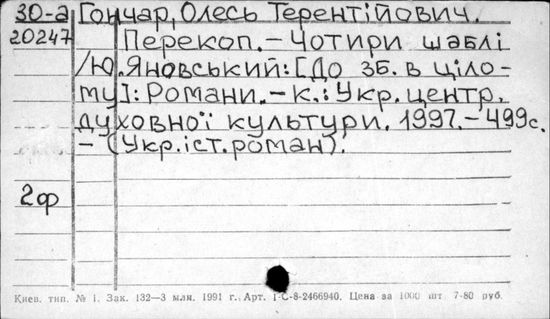 30-а Гончар, Олесь Терентійович.
20247 Перекоп. – Чотири шаблі
/Ю. Яновський: [До зб. в ціло-
му]: Романи. – К.: Укр. центр.
духовної культури. 1997. – 499с.
– (Укр. іст. роман).
2ф
Киев. тип. № 1. Зак. 132—3 млн. 1991 г. Арт. 1-С-8-2466940. Цена за 1000 шт 7-80 руб.